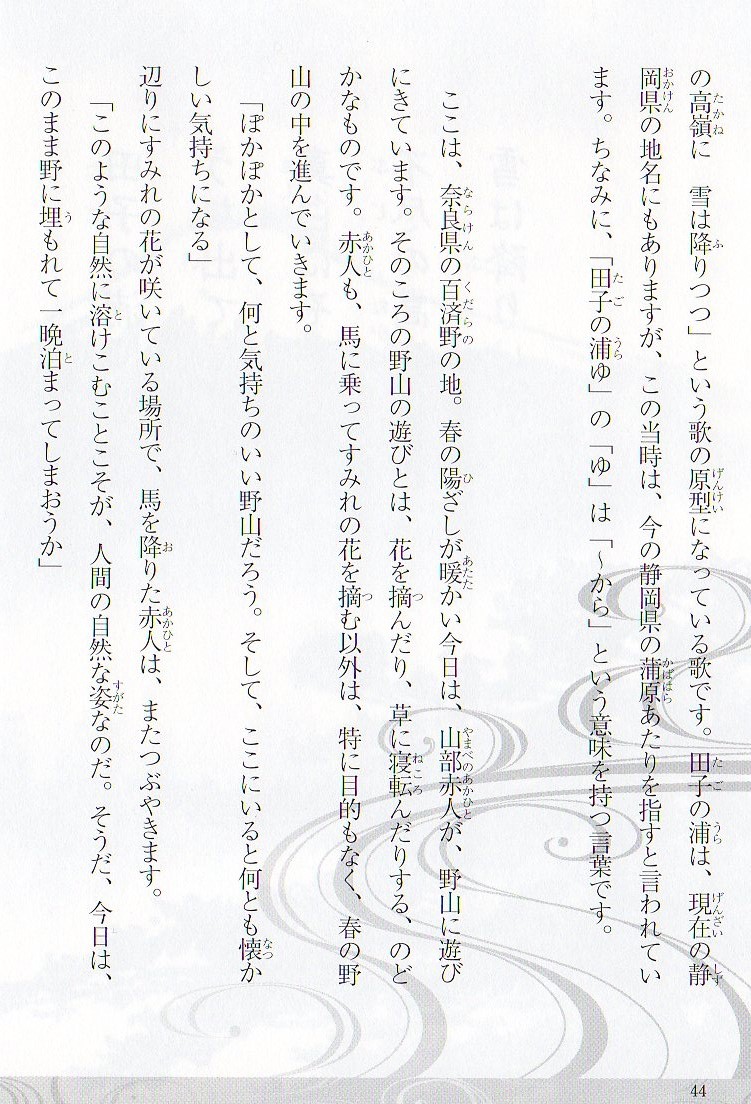 の高嶺に　雪は降りつつ」という歌の原型になっている歌です。田子の浦は、現在の静
岡県の地名にもありますが、この当時は、今の静岡県の蒲原あたりを指すと言われてい
ます。ちなみに、「田子の浦ゆ」の「ゆ」は「～から」という意味を持つ言葉です。
　ここは、奈良県の百済野の地。春の陽ざしが暖かい今日は、山部赤人が、野山に遊び
にきています。そのころの野山の遊びとは、花を摘んだり、草に寝転んだりする、のど
かなものです。赤人も、馬に乗ってすみれの花を摘む以外は、特に目的もなく、春の野
山の中を進んでいきます。
「ぽかぽかとして、何と気持ちのいい野山だろう。そして、ここにいると何とも懐か
しい気持ちになる」
辺りにすみれの花が咲いている場所で、馬を降りた赤人は、またつぶやきます。
「このような自然に溶けこむことこそが、人間の自然な姿なのだ。そうだ、今日は、
このまま野に埋もれて一晩泊まってしまおうか」
44